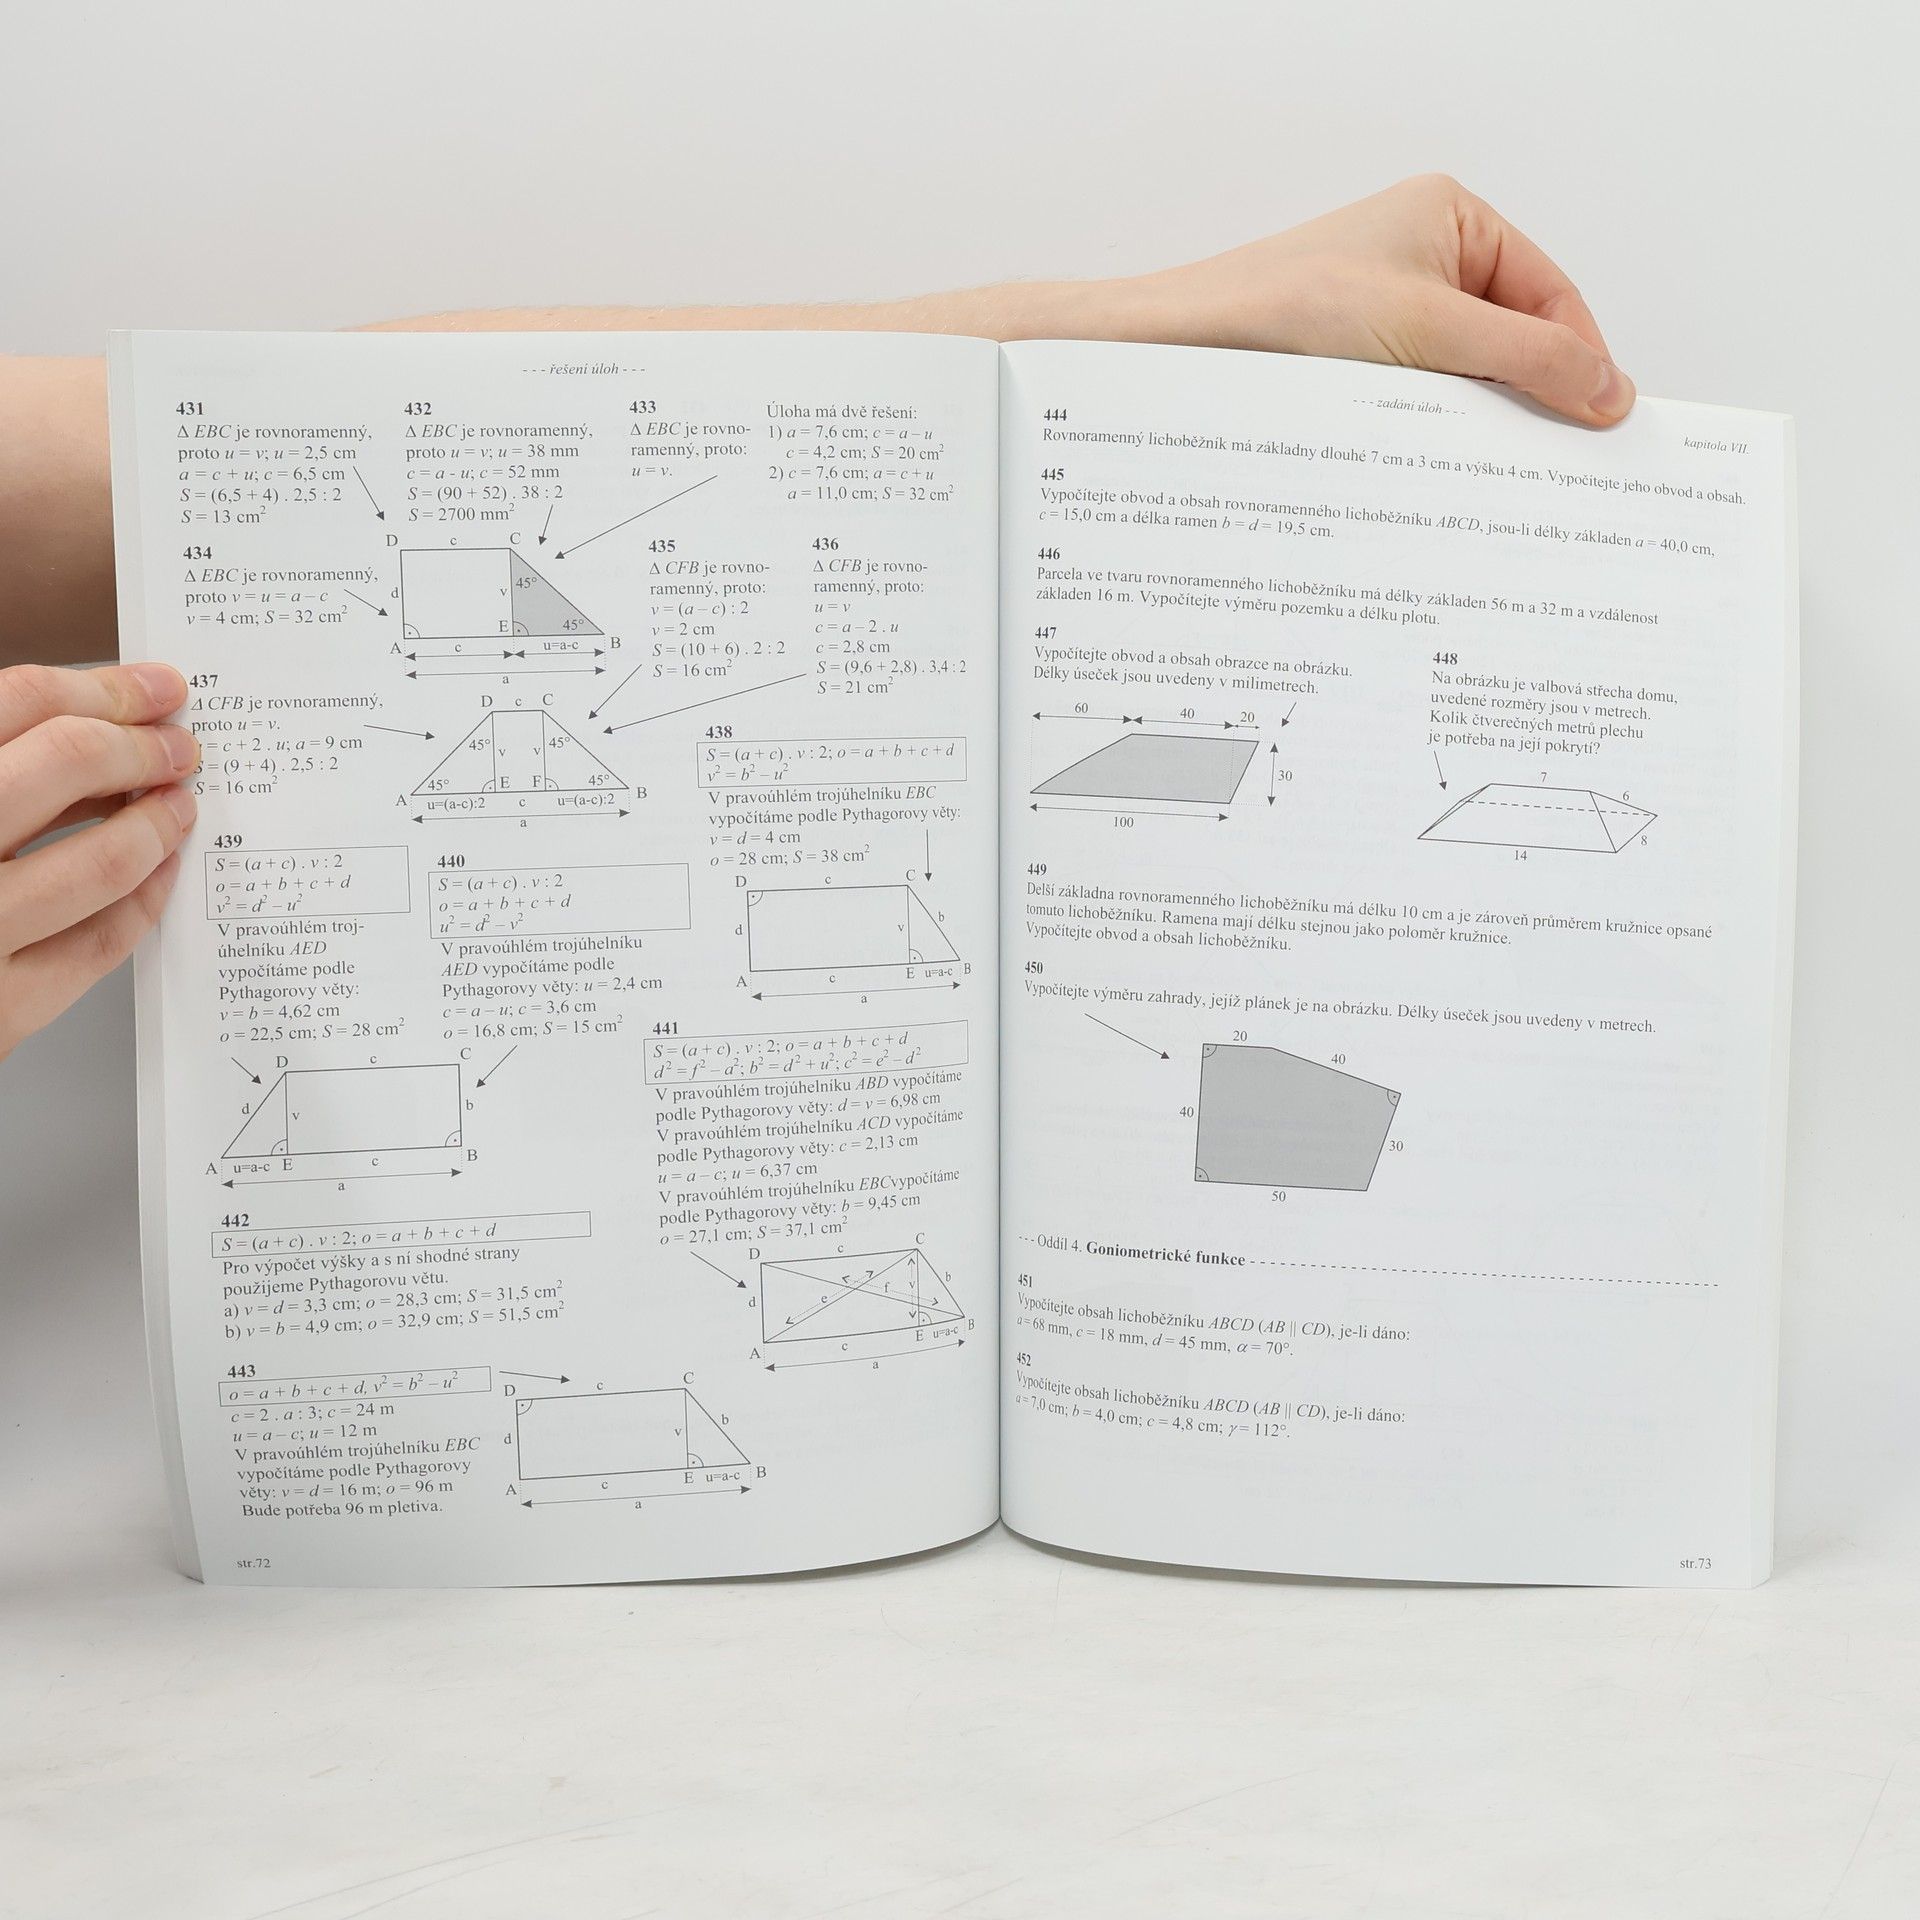 - - - řešení úloh - - -
431
Δ EBC je rovnoramenný,
proto u = v; u = 2,5 cm
a = c + u; c = 6,5 cm
S = (6,5 + 4) . 2,5 : 2
S = 13 cm²
432
Δ EBC je rovnoramenný,
proto u = v; u = 38 mm
c = a - u; c = 52 mm
S = (90 + 52) . 38 : 2
S = 2700 mm²
433
Δ EBC je rovno-
ramenný, proto:
u = v.
Úloha má dvě řešení:
1) a = 7,6 cm; c = a – u
c = 4,2 cm; S = 20 cm²
2) c = 7,6 cm; a = c + u
a = 11,0 cm; S = 32 cm²
434
Δ EBC je rovnoramenný,
proto v = u = a – c
v = 4 cm; S = 32 cm²
D c C
d v 45°
E 45°
A c u=a-c B
a
435
Δ CFB je rovno-
ramenný, proto:
v = (a – c) : 2
v = 2 cm
S = (10 + 6) . 2 : 2
S = 16 cm²
436
Δ CFB je rovno-
ramenný, proto:
u = v
c = a – 2 . u
c = 2,8 cm
S = (9,6 + 2,8) . 3,4 : 2
S = 21 cm²
437
Δ CFB je rovnoramenný,
proto u = v.
= c + 2 . u; a = 9 cm
S = (9 + 4) . 2,5 : 2
S = 16 cm²
D c C
45° v v 45°
45° E F 45°
A u=(a-c):2 c u=(a-c):2 B
a
438
S = (a + c) . v : 2; o = a + b + c + d
v² = b² – u²
V pravoúhlém trojúhelníku EBC
vypočítáme podle Pythagorovy věty:
v = d = 4 cm
o = 28 cm; S = 38 cm²
D c C
d v b
A c E u=a-c B
a
439
S = (a + c) . v : 2
o = a + b + c + d
v² = d² – u²
V pravoúhlém troj-
úhelníku AED
vypočítáme podle
Pythagorovy věty:
v = b = 4,62 cm
o = 22,5 cm; S = 28 cm²
440
S = (a + c) . v : 2
o = a + b + c + d
u² = d² – v²
V pravoúhlém trojúhelníku
AED vypočítáme podle
Pythagorovy věty: u = 2,4 cm
c = a – u; c = 3,6 cm
o = 16,8 cm; S = 15 cm²
D c C
d v b
A u=a-c E c B
a
441
S = (a + c) . v : 2; o = a + b + c + d
d² = f² – a²; b² = d² + u²; c² = e² – d²
V pravoúhlém trojúhelníku ABD vypočítáme
podle Pythagorovy věty: d = v = 6,98 cm
V pravoúhlém trojúhelníku ACD vypočítáme
podle Pythagorovy věty: c = 2,13 cm
u = a – c; u = 6,37 cm
V pravoúhlém trojúhelníku EBCvypočítáme
podle Pythagorovy věty: b = 9,45 cm
o = 27,1 cm; S = 37,1 cm²
D c C
d e f v b
A c E u=a-c B
a
442
S = (a + c) . v : 2; o = a + b + c + d
Pro výpočet výšky a s ní shodné strany
použijeme Pythagorovu větu.
a) v = d = 3,3 cm; o = 28,3 cm; S = 31,5 cm²
b) v = b = 4,9 cm; o = 32,9 cm; S = 51,5 cm²
443
o = a + b + c + d, v² = b² – u²
c = 2 . a : 3; c = 24 m
u = a – c; u = 12 m
V pravoúhlém trojúhelníku EBC
vypočítáme podle Pythagorovy
věty: v = d = 16 m; o = 96 m
Bude potřeba 96 m pletiva.
D c C
d v b
A c E u=a-c B
a
str.72
- - - zadání úloh - - -
kapitola VII.
444
Rovnoramenný lichoběžník má základny dlouhé 7 cm a 3 cm a výšku 4 cm. Vypočítejte jeho obvod a obsah.
445
Vypočítejte obvod a obsah rovnoramenného lichoběžníku ABCD, jsou-li délky základen a = 40,0 cm,
c = 15,0 cm a délka ramen b = d = 19,5 cm.
446
Parcela ve tvaru rovnoramenného lichoběžníku má délky základen 56 m a 32 m a vzdálenost
základen 16 m. Vypočítejte výměru pozemku a délku plotu.
447
Vypočítejte obvod a obsah obrazce na obrázku.
Délky úseček jsou uvedeny v milimetrech.
60 40 20
30
100
448
Na obrázku je valbová střecha domu,
uvedené rozměry jsou v metrech.
Kolik čtverečných metrů plechu
je potřeba na její pokrytí?
7
6
8
14
449
Delší základna rovnoramenného lichoběžníku má délku 10 cm a je zároveň průměrem kružnice opsané
tomuto lichoběžníku. Ramena mají délku stejnou jako poloměr kružnice.
Vypočítejte obvod a obsah lichoběžníku.
450
Vypočítejte výměru zahrady, jejíž plánek je na obrázku. Délky úseček jsou uvedeny v metrech.
20
40
40
30
50
- - - Oddíl 4. Goniometrické funkce - - - - - - - - - - - - - - - - - - - - - - - - - - - - - - - - - - - - - - - -
451
Vypočítejte obsah lichoběžníku ABCD (AB || CD), je-li dáno:
a = 68 mm, c = 18 mm, d = 45 mm, α = 70°.
452
Vypočítejte obsah lichoběžníku ABCD (AB || CD), je-li dáno:
a = 7,0 cm; b = 4,0 cm; c = 4,8 cm; γ = 112°.
str.73